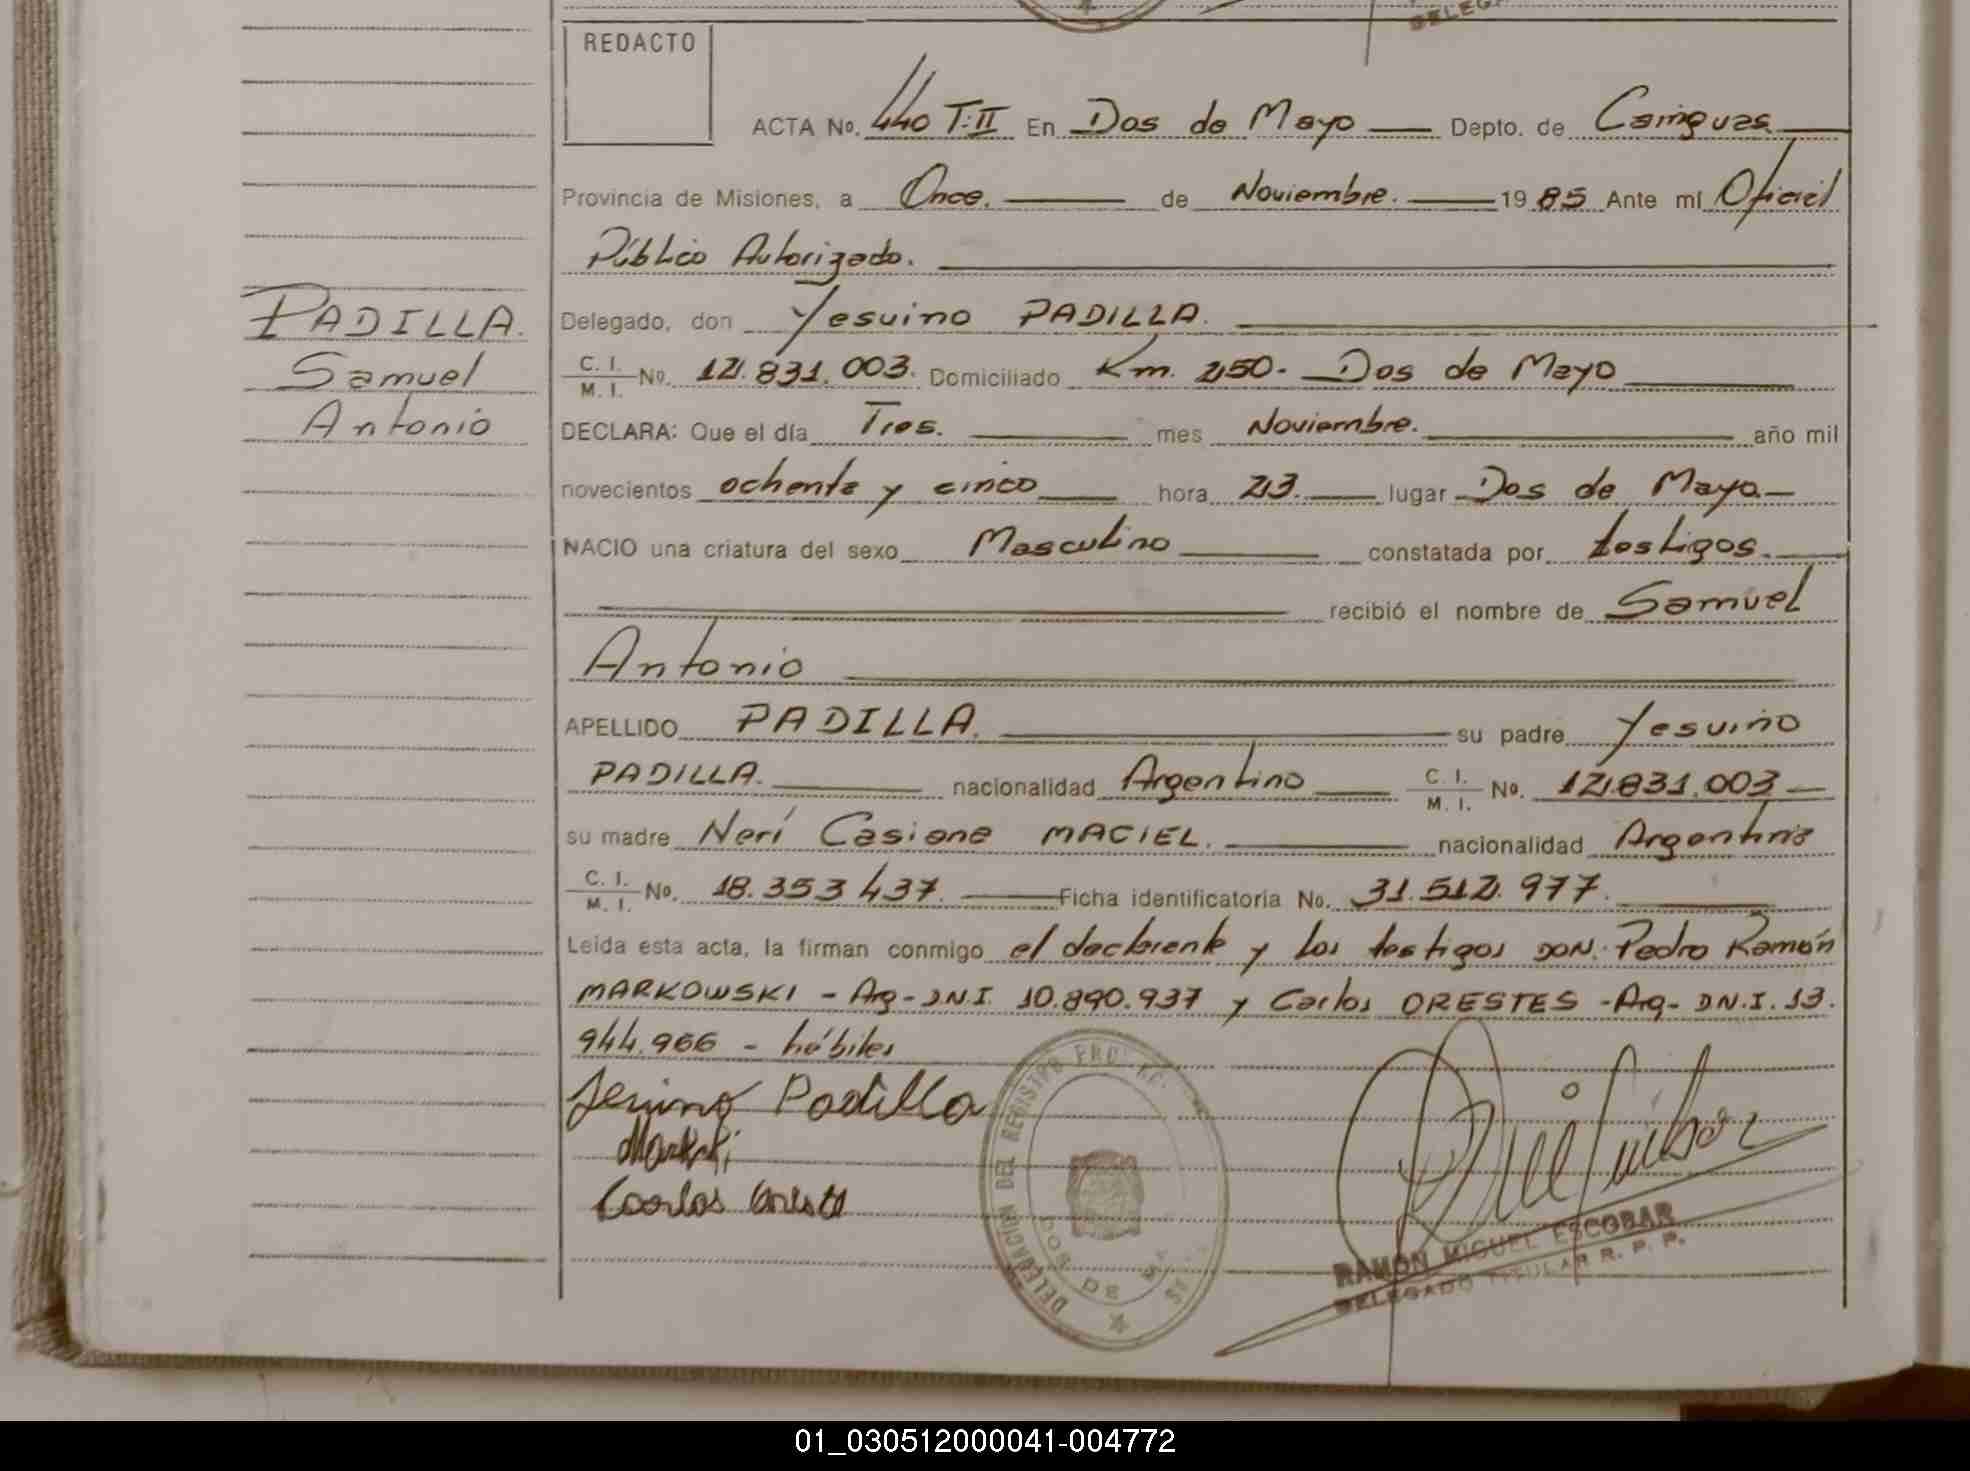 DELEGA
REDACTO
ACTA No. 440 T:II En Dos de Mayo Depto. de Cainguas
Provincia de Misiones, a Once. de Noviembre. 1985 Ante mí Oficial
Público Autorizado.
PADILLA.
Samuel
Antonio
Delegado, don Yesuino PADILLA.
C. I. M. I. No. 12.831.003. Domiciliado Km. 250. Dos de Mayo
DECLARA: Que el día Tres. mes Noviembre. año mil
novecientos ochenta y cinco hora 23. lugar Dos de Mayo.
NACIO una criatura del sexo Masculino constatada por testigos.
recibió el nombre de Samuel
Antonio
APELLIDO PADILLA. su padre Yesuino
PADILLA. nacionalidad Argentino C. I. M. I. No. 12.831.003
su madre Nerí Casiana MACIEL. nacionalidad Argentina
C. I. M. I. No. 18.353437. Ficha identificatoria No. 31.512.977.
Leída esta acta, la firman conmigo el declarante y los testigos DON. Pedro Ramón
MARKOWSKI - Arg - D.N.I. 10.890.937 y Carlos ORESTES - Arg - D.N.I. 13.
944.966 - hábiles
Padilla
Carlos
DELEGACION DEL REGISTRO PRO
DOS DE
RAMON MIGUEL ESCOBAR
DELEGADO TITULAR R. P. P.
01_030512000041-004772